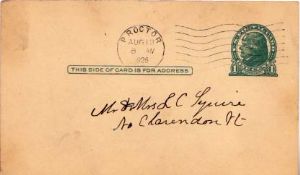 PROCTOR
AUG 19
8 AM
1926
THIS SIDE OF CARD IS FOR ADDRESS
Mr & Mrs L C Squire
No Clarendon Vt